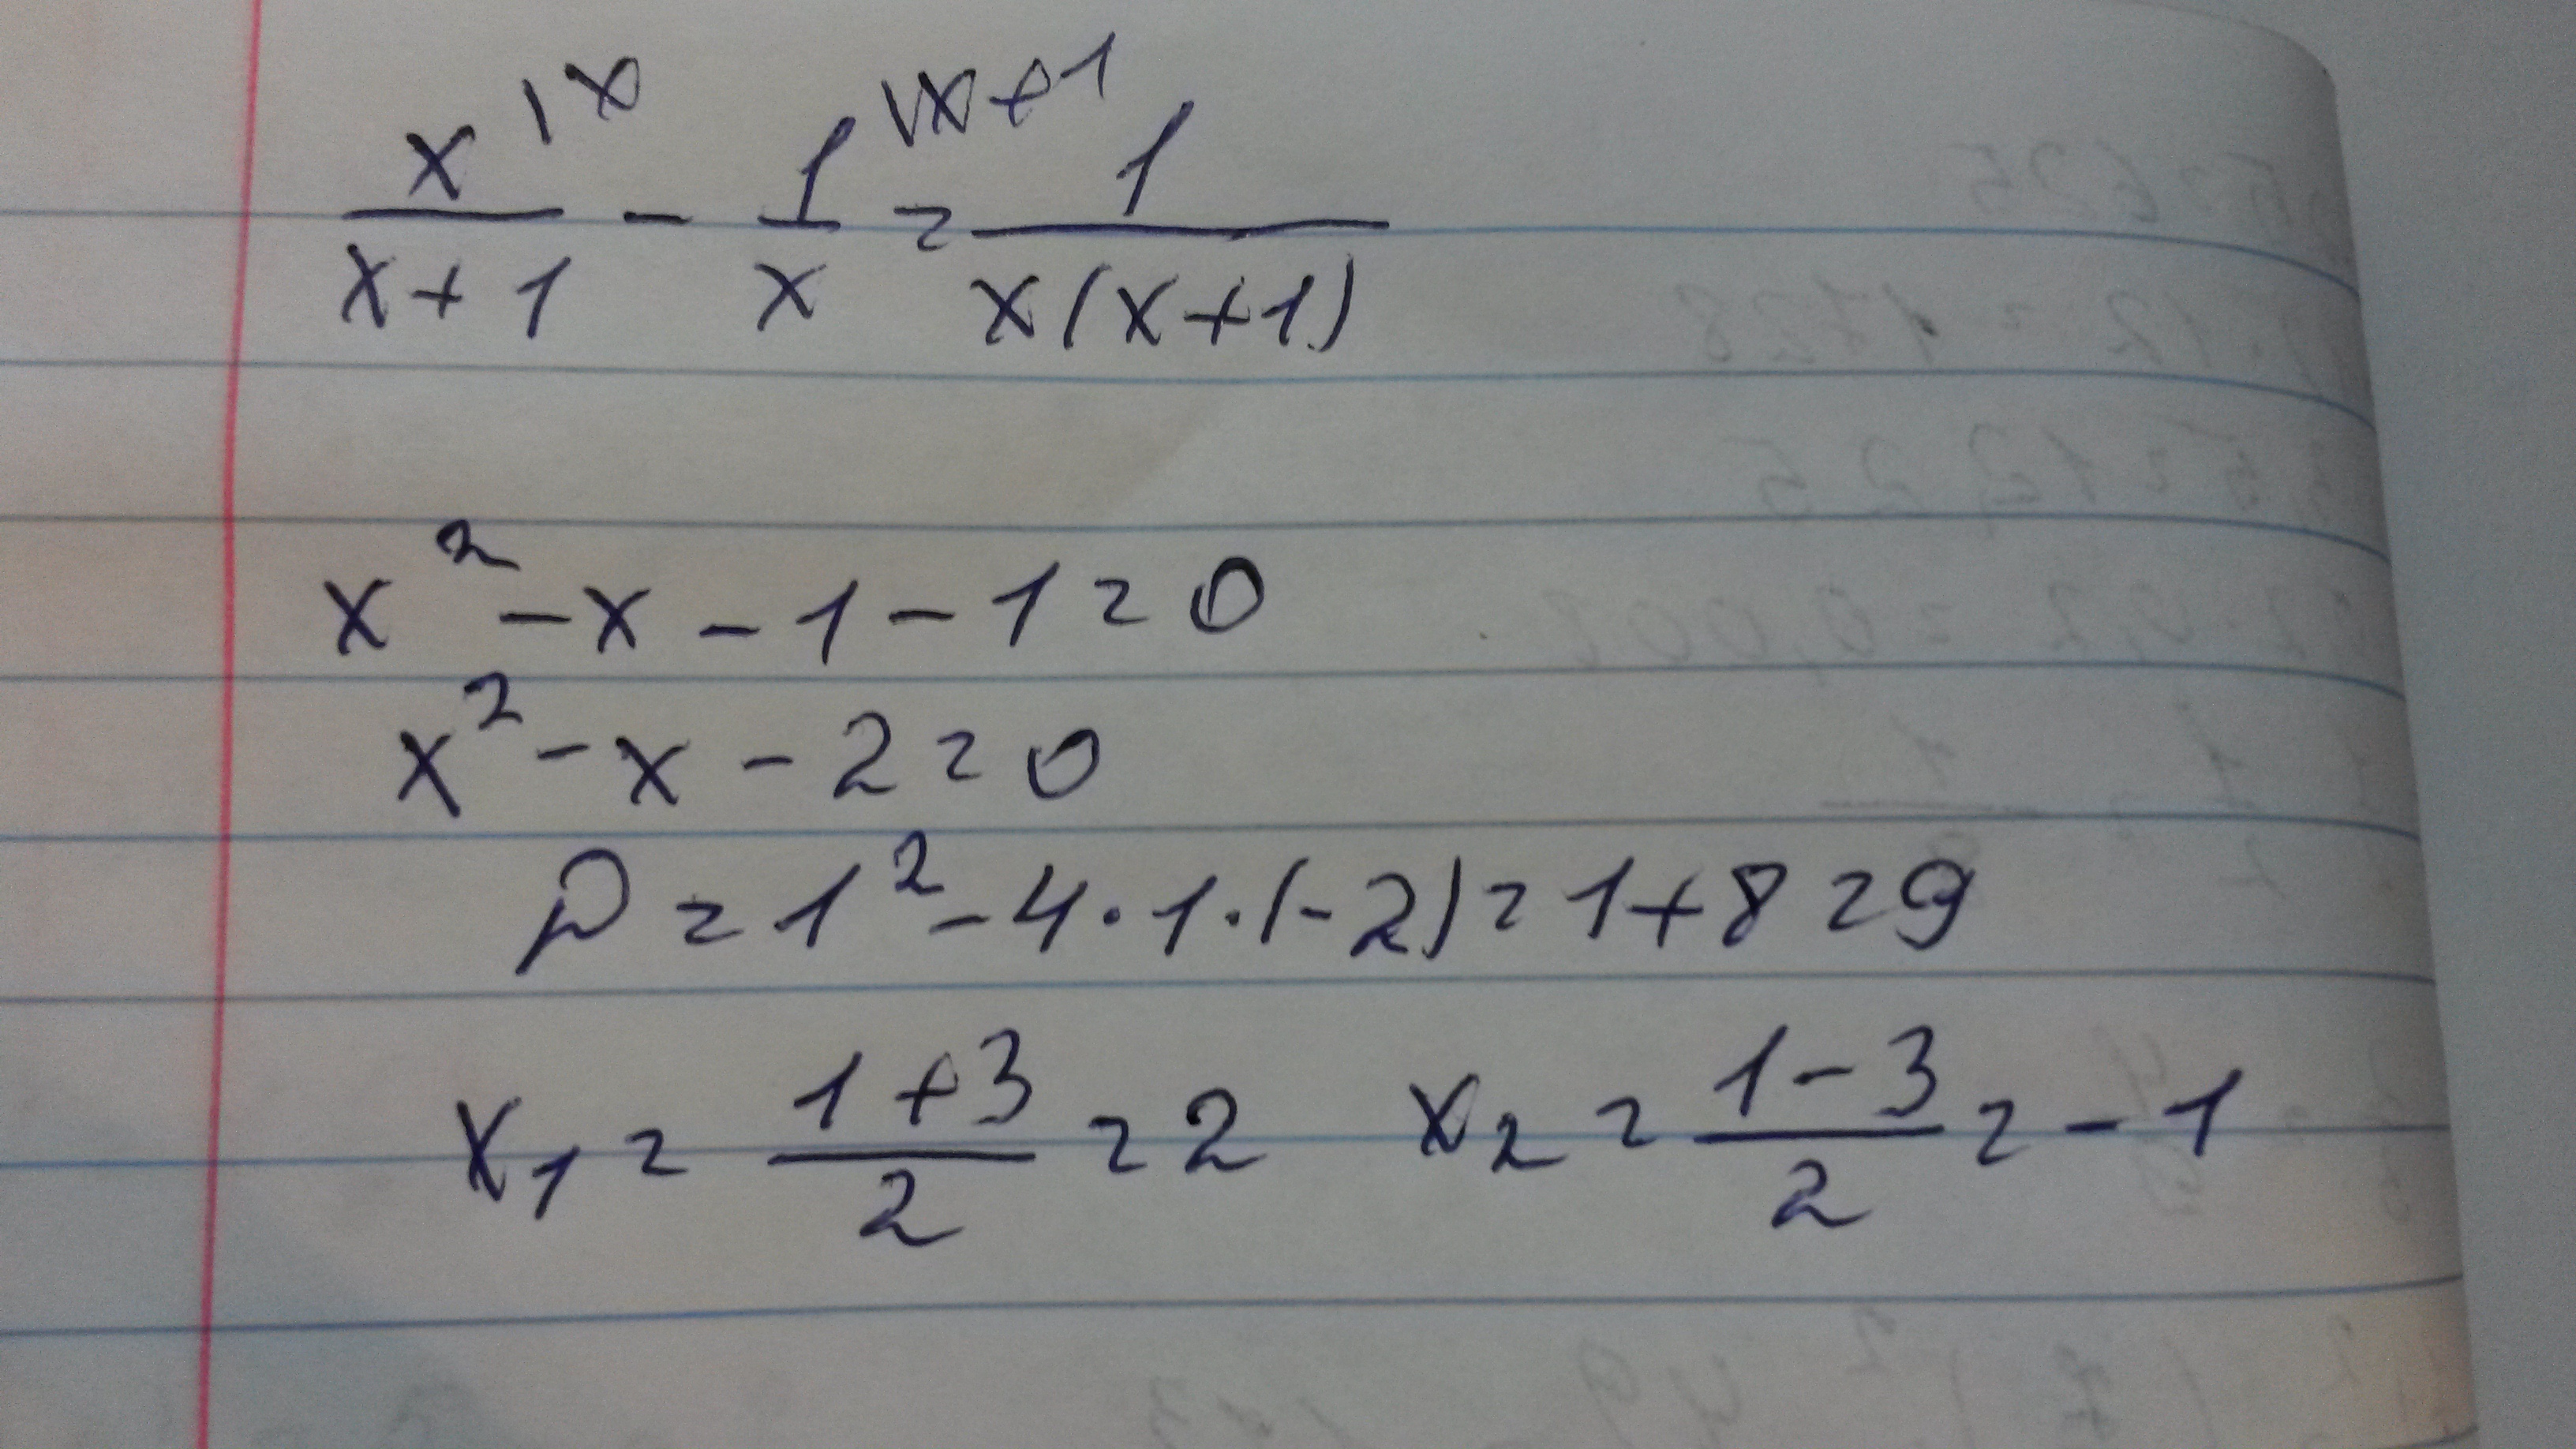 x/(x+1) |x - 1/x |x+1 = 1/(x(x+1))
x² - x - 1 - 1 = 0
x² - x - 2 = 0
D = 1² - 4 · 1 · (-2) = 1 + 8 = 9
x₁ = (1+3)/2 = 2 x₂ = (1-3)/2 = -1